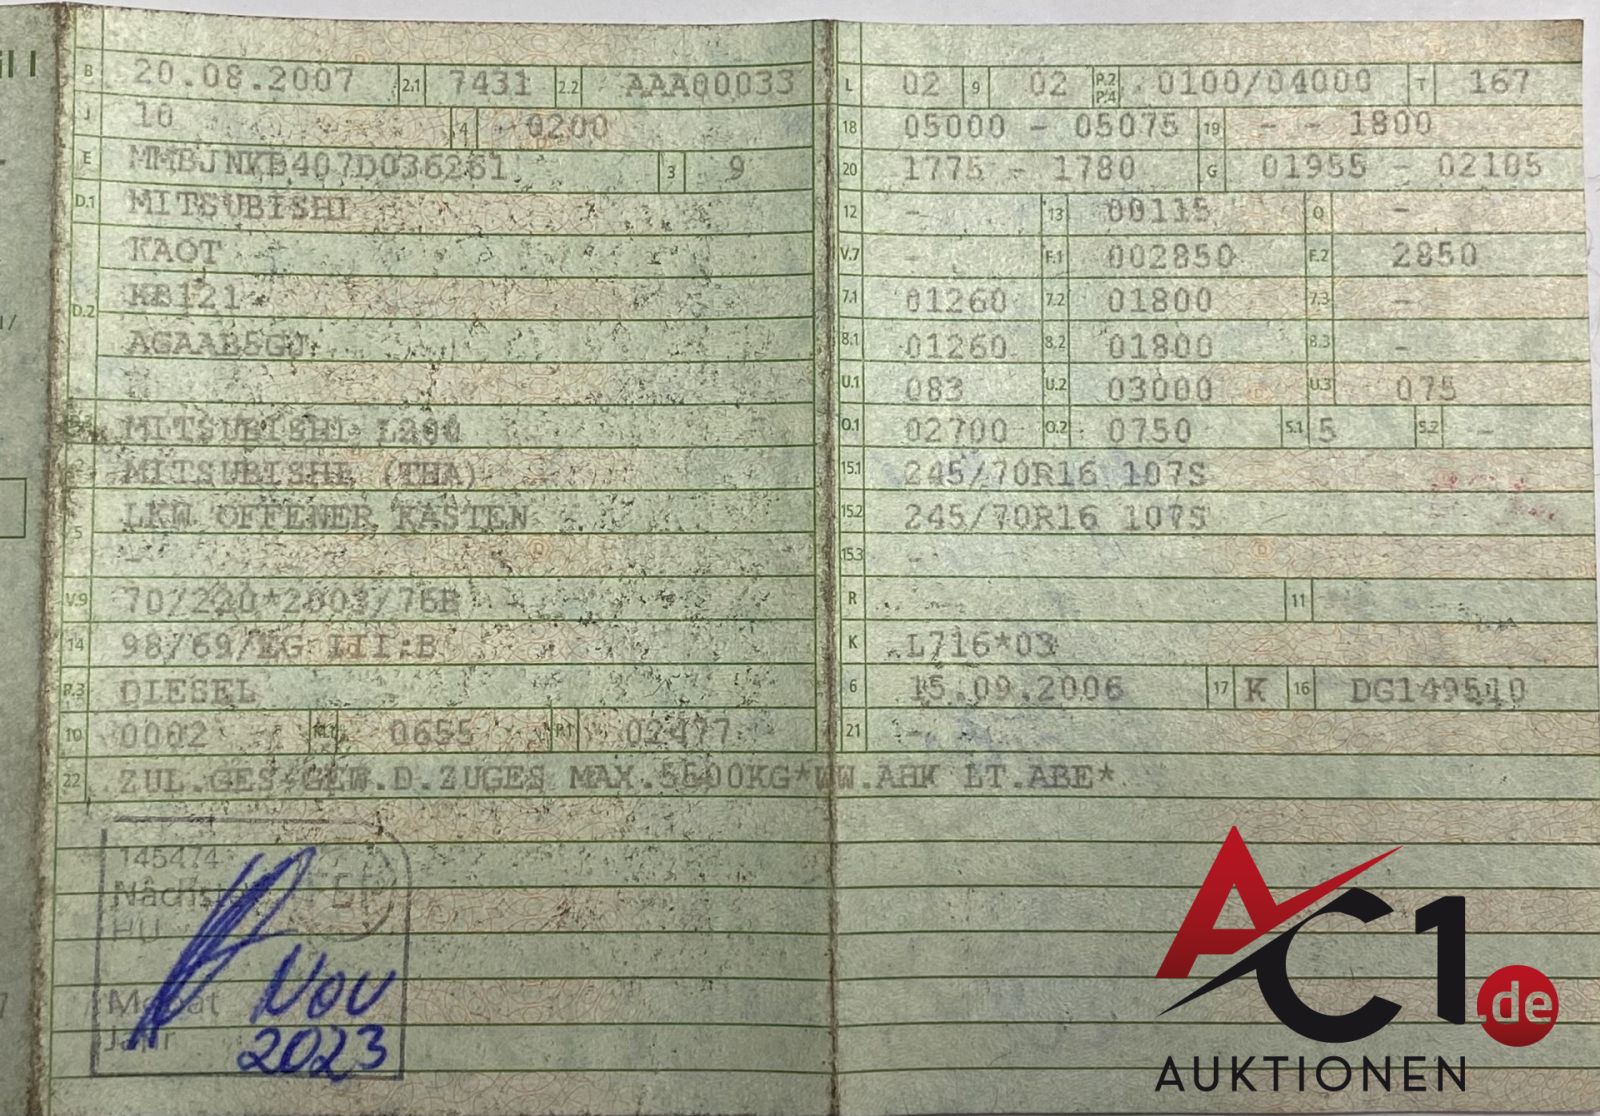 il I
B 20.08.2007 2.1 7431 2.2 AAA00033
J 10 4 0200
E MMBJNKB407D036261 3 9
D.1 MITSUBISHI
KAOT
D.2 KB121
AGAAB5GJ
-
MITSUBISHI L200
2 MITSUBISHI (THA)
5 LKW OFFENER KASTEN
-
V.9 70/220*2003/76B
14 98/69/EG III;B
P.3 DIESEL
10 0002 0655 P.1 02477
L 02 9 02 P.2 P.4 0100/04000 T 167
18 05000 - 05075 19 - - 1800
20 1775 - 1780 G 01955 - 02185
12 - 13 00115 Q -
V.7 - F.1 002850 F.2 2850
7.1 01260 7.2 01800 7.3 -
8.1 01260 8.2 01800 8.3 -
U.1 083 U.2 03000 U.3 075
O.1 02700 O.2 0750 S.1 5 S.2 -
15.1 245/70R16 107S
15.2 245/70R16 107S
15.3 -
R - 11
K L716*03
6 15.09.2006 17 K 16 DG149510
21 -
22 ZUL.GES.GEW.D.ZUGES MAX.5500KG*WW.AHK LT.ABE*
145474
Nächste
HU
Monat Nov
Jahr 2023
AC1.de
AUKTIONEN